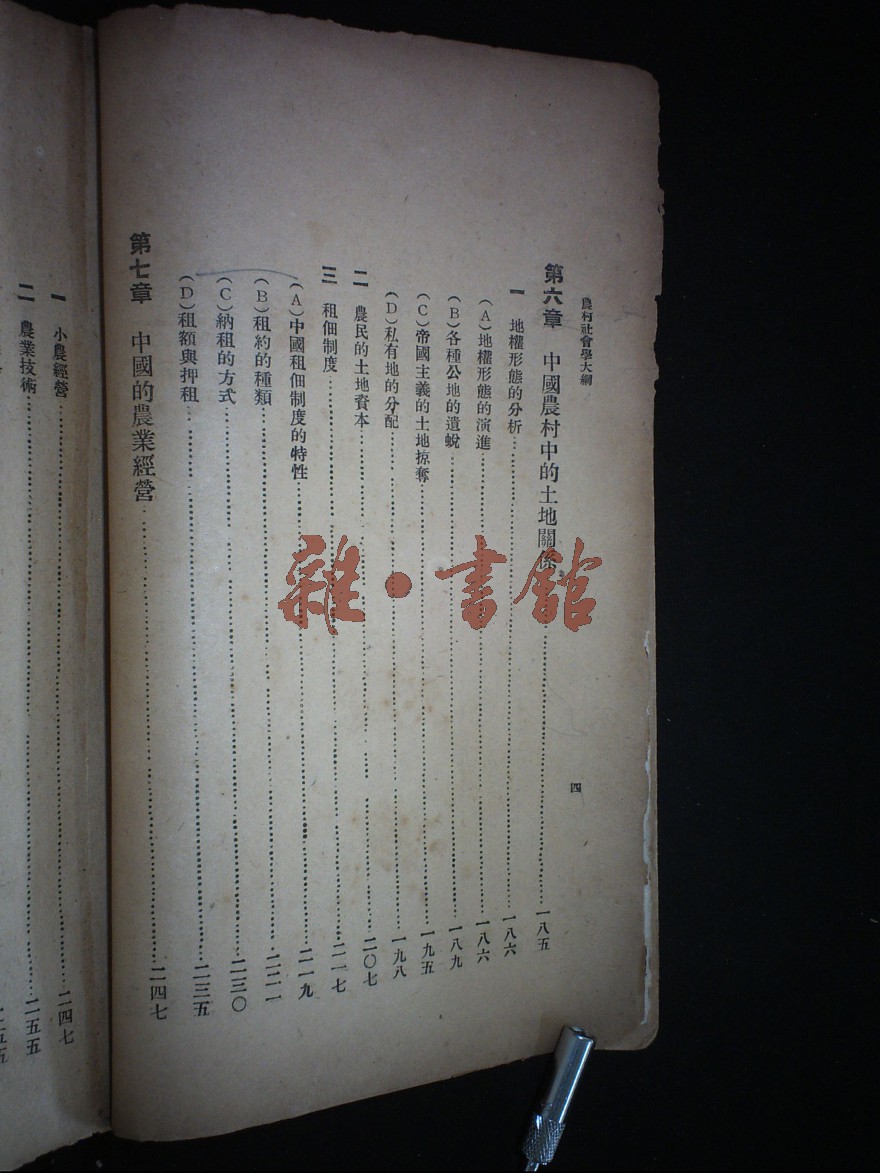 農村社會學大綱
四
第六章 中國農村中的土地關係……一八五
一 地權形態的分析……一八六
(A)地權形態的演進……一八六
(B)各種公地的遺蛻……一八九
(C)帝國主義的土地掠奪……一九五
(D)私有地的分配……一九八
二 農民的土地資本……二〇七
三 租佃制度……二一七
(A)中國租佃制度的特性……二一九
(B)租約的種類……二二一
(C)納租的方式……二三〇
(D)租額與押租……二三五
第七章 中國的農業經營……二四七
一 小農經營……二四七
二 農業技術……二五五
雜·書館